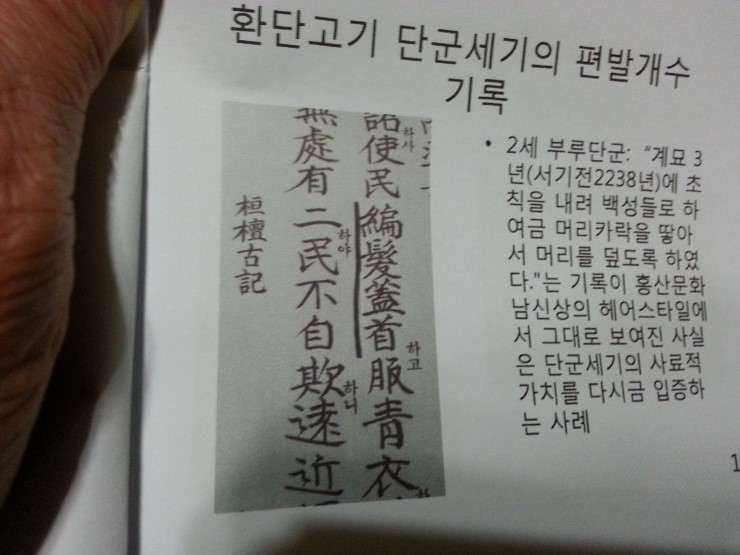 환단고기 단군세기의 편발개수
기록
詔하사使民編髮蓋首하고服青衣
無處有二民하야不自欺하니遠近
桓檀古記
• 2세 부루단군: “계묘 3
년(서기전2238년)에 조
칙을 내려 백성들로 하
여금 머리카락을 땋아
서 머리를 덮도록 하였
다."는 기록이 홍산문화
남신상의 헤어스타일에
서 그대로 보여진 사실
은 단군세기의 사료적
가치를 다시금 입증하
는 사례
1